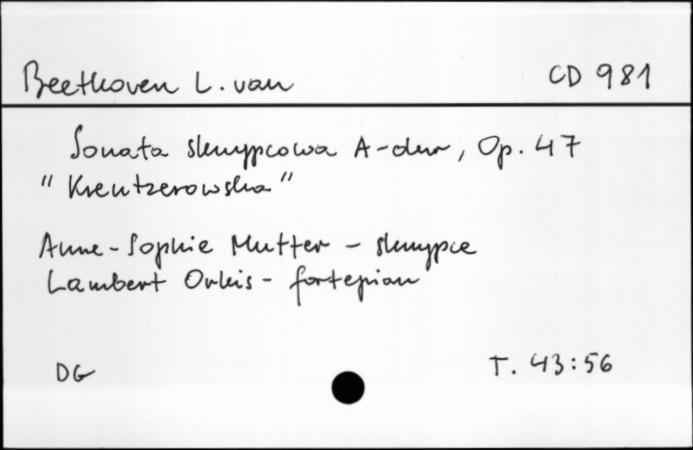 Beethoven L. van CD 981
Sonata skrzypcowa A-dur, Op. 47
"Kreutzerowska"
Anne-Sophie Mutter - skrzypce
Lambert Orkis - fortepian
DG T. 43:56